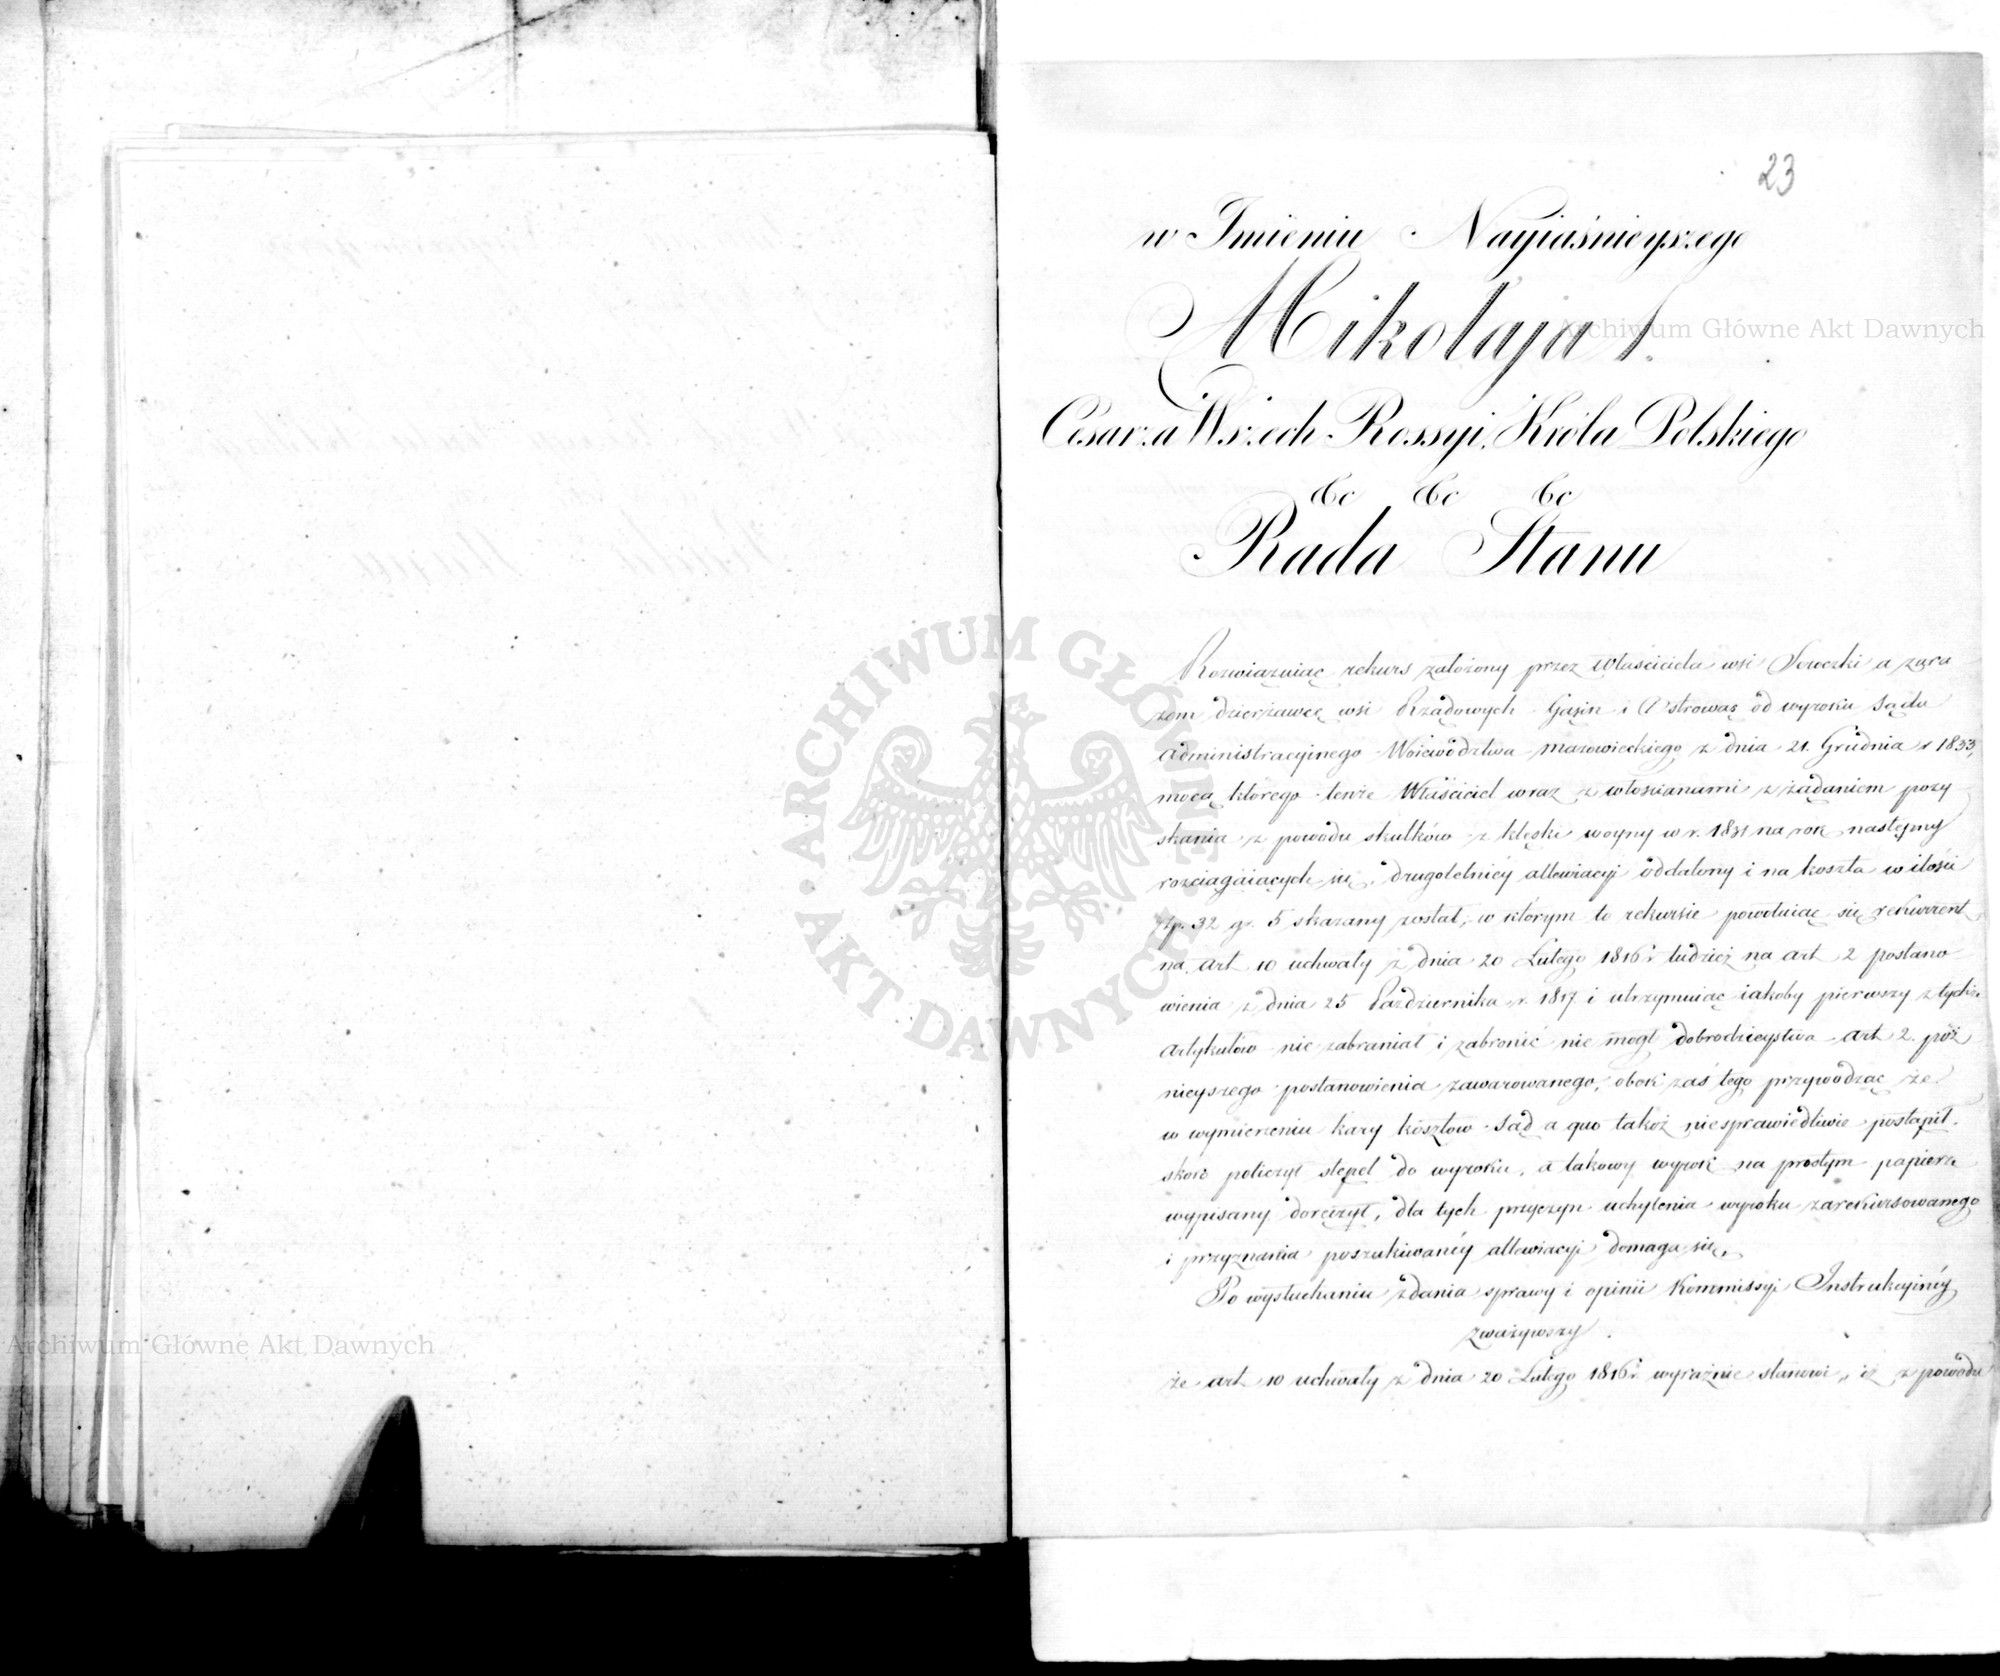 23
w Imieniu Nayiaśnieyszego
Mikołaja I.
Cesarza Wszech Rossyi, Króla Polskiego
&c &c &c
Rada Stanu
Rozwiązuiąc rekurs założony przez Właściciela wsi a zara
zem dzierżawcę wsi Rządowych Gąsin i Ostrowąs od wyroku Sądu
Administracyinego Woiewództwa Mazowieckiego z dnia 21. Grudnia r 1833,
mocą którego tenże Właściciel wraz z włościanami z żądaniem pozy
skania z powodu skutków z klęski woyny w r. 1831 na rok następny
rozciągaiących się, drugoletniéy allewiacyi oddalony i na koszta w ilości
złp. 32 gr. 5 skazany został, w którym to rekursie powołuiąc się rekurrent
na art 10 uchwały z dnia 20 Lutego 1816 r. tudzież na art 2 postano
wienia z dnia 25 Października r. 1817 i utrzymuiąc iakoby pierwszy z tychże
Artykułów nie zabraniał i zabronić nie mógł dobrodzieystwa art 2. póź
nieyszego postanowienia zawarowanego, obok zaś tego przywodząc że
w wymierzeniu kary kosztów Sąd a quo takoż niesprawiedliwie postąpił,
skoro policzył stępel do wyroku, a takowy wyrok na prostym papierze
wypisany doręczył, dla tych przyczyn uchylenia wyroku zarekursowanego
i przyznania poszukiwanéy allewiacyi domaga się,
Po wysłuchaniu zdania sprawy i opinii Kommissyi Instrukcyinéy
zważywszy
że art 10 uchwały z dnia 20 Lutego 1816 r. wyraźnie stanowi „iż z powodu
Archiwum Główne Akt Dawnych
Archiwum Główne Akt Dawnych
ARCHIWUM GŁÓWNE AKT DAWNYCH